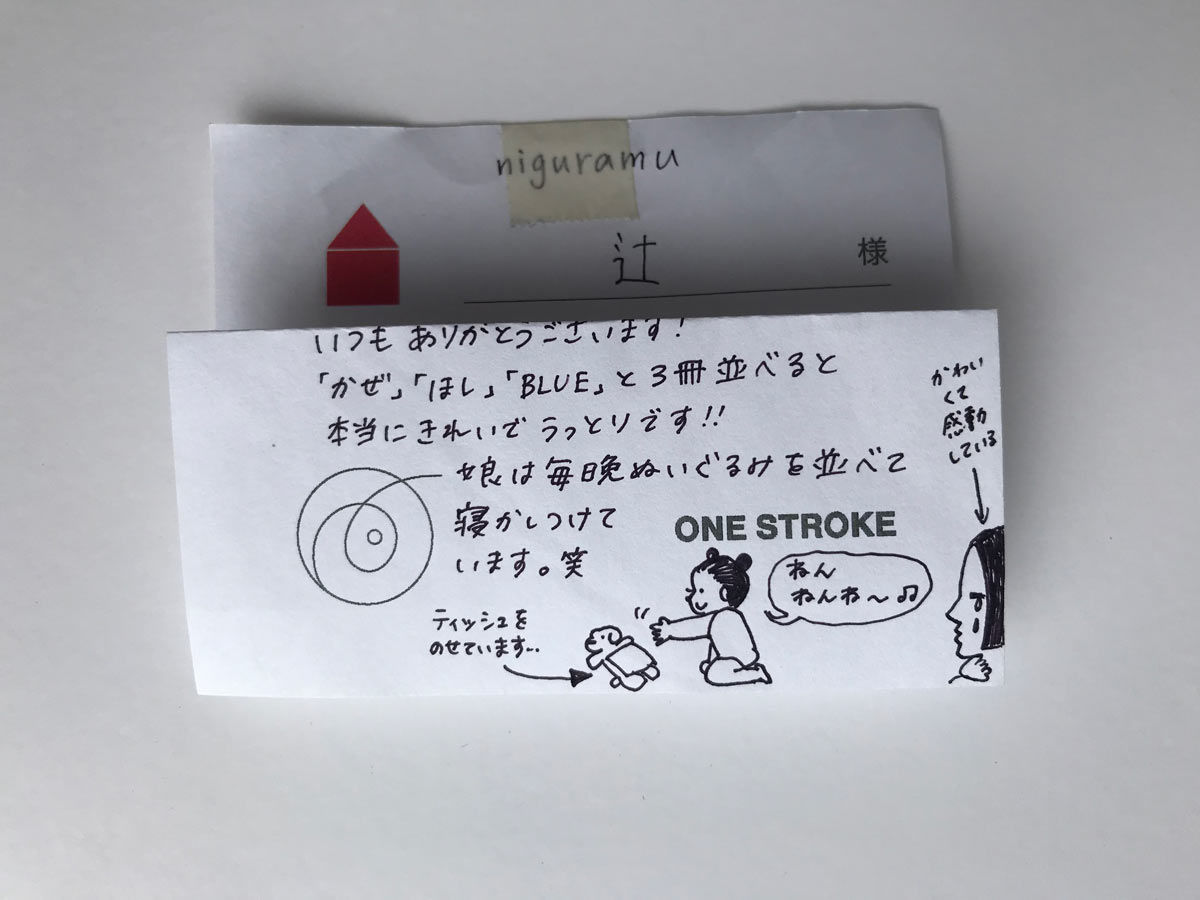 niguramu
辻 様
いつもありがとうございます!
「かぜ」「ほし」「BLUE」と3冊並べると
本当にきれいでうっとりです!!
娘は毎晩ぬいぐるみを並べて
寝かしつけて
います。笑
ONE STROKE
ねん
ねんね〜♫
ティッシュを
のせています…
かわい
くて
感動
している